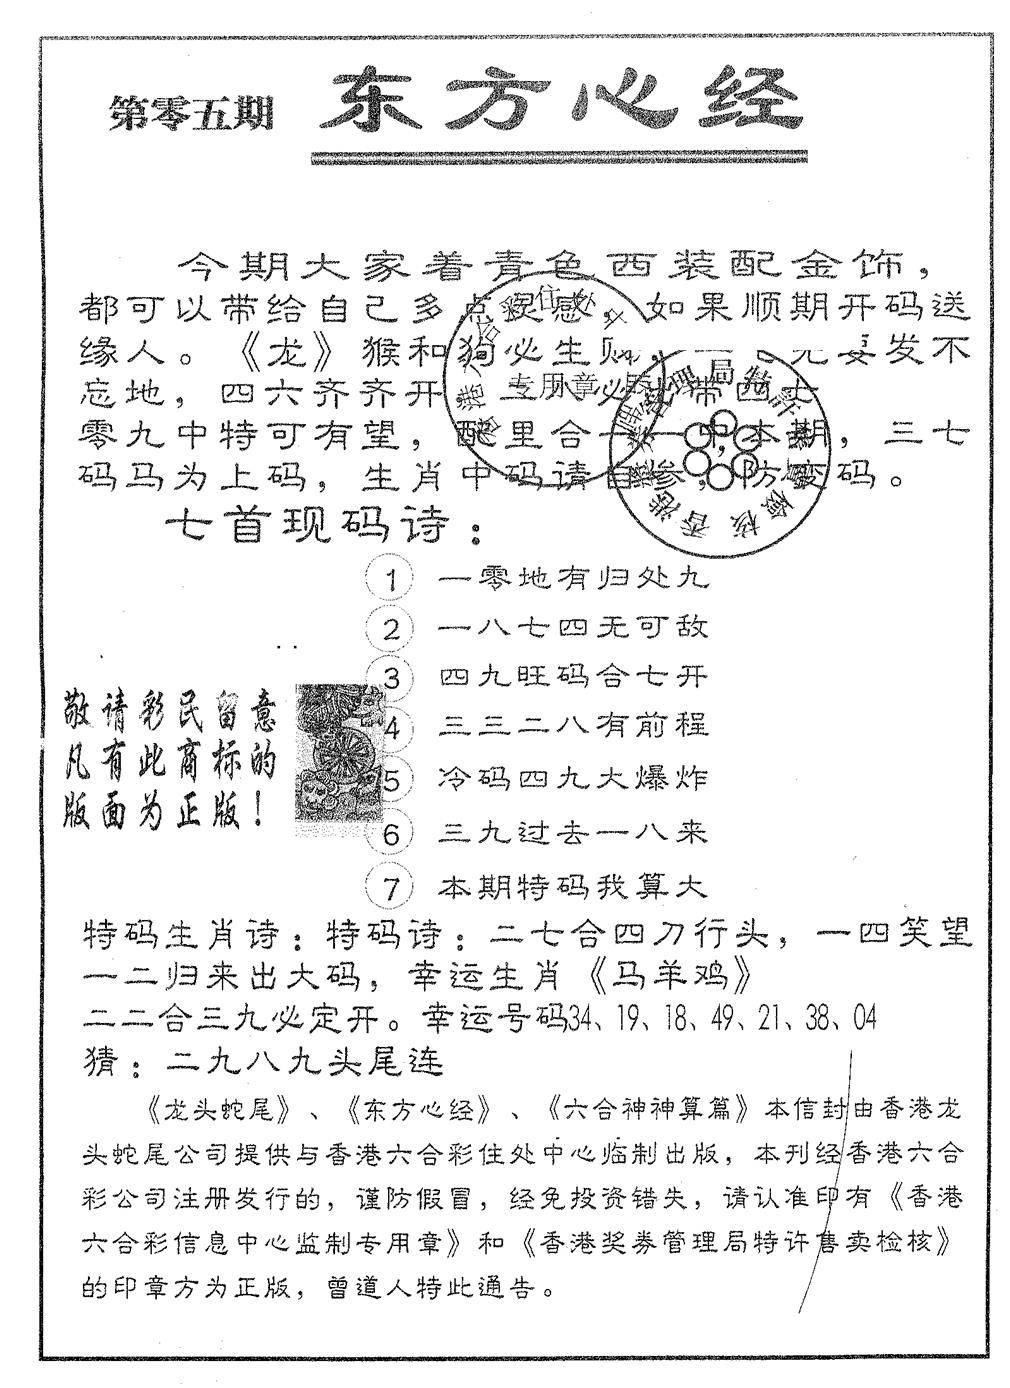 第零五期 东方心经
今期大家着青色西装配金饰，
都可以带给自己多点灵感。如果顺期开码送
缘人。《龙》猴和狗必生财，一 发不
忘地，四六齐齐开 必 带四七
零九中特可有望， 里合一 中本期，三七
码马为上码，生肖中码请自参，防变码。
七首现码诗：
1 一零地有归处九
2 一八七四无可敌
3 四九旺码合七开
4 三三二八有前程
5 冷码四九大爆炸
6 三九过去一八来
7 本期特码我算大
敬请彩民留意
凡有此商标的
版面为正版！
特码生肖诗：特码诗：二七合四刀行头，一四笑望
一二归来出大码，幸运生肖《马羊鸡》
二二合三九必定开。幸运号码34、19、18、49、21、38、04
猜：二九八九头尾连
《龙头蛇尾》、《东方心经》、《六合神神算篇》本信封由香港龙
头蛇尾公司提供与香港六合彩住处中心临制出版，本刊经香港六合
彩公司注册发行的，谨防假冒，经免投资错失，请认准印有《香港
六合彩信息中心监制专用章》和《香港奖券管理局特许售卖检核》
的印章方为正版，曾道人特此通告。
专用章